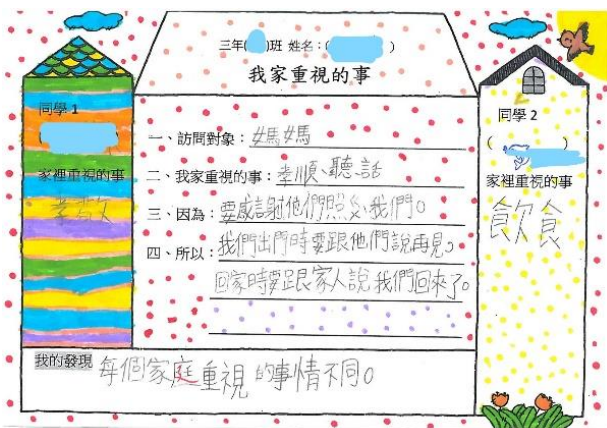 三年( )班 姓名:( )
我家重視的事
同學 1
家裡重視的事
一、訪問對象:媽媽
二、我家重視的事:孝順、聽話
三、因為:要感謝他們照顧我們。
四、所以:我們出門時要跟他們說再見。
回家時要跟家人說我們回來了。
同學 2
( )
家裡重視的事
飲食
我的發現 每個家庭重視的事情不同。